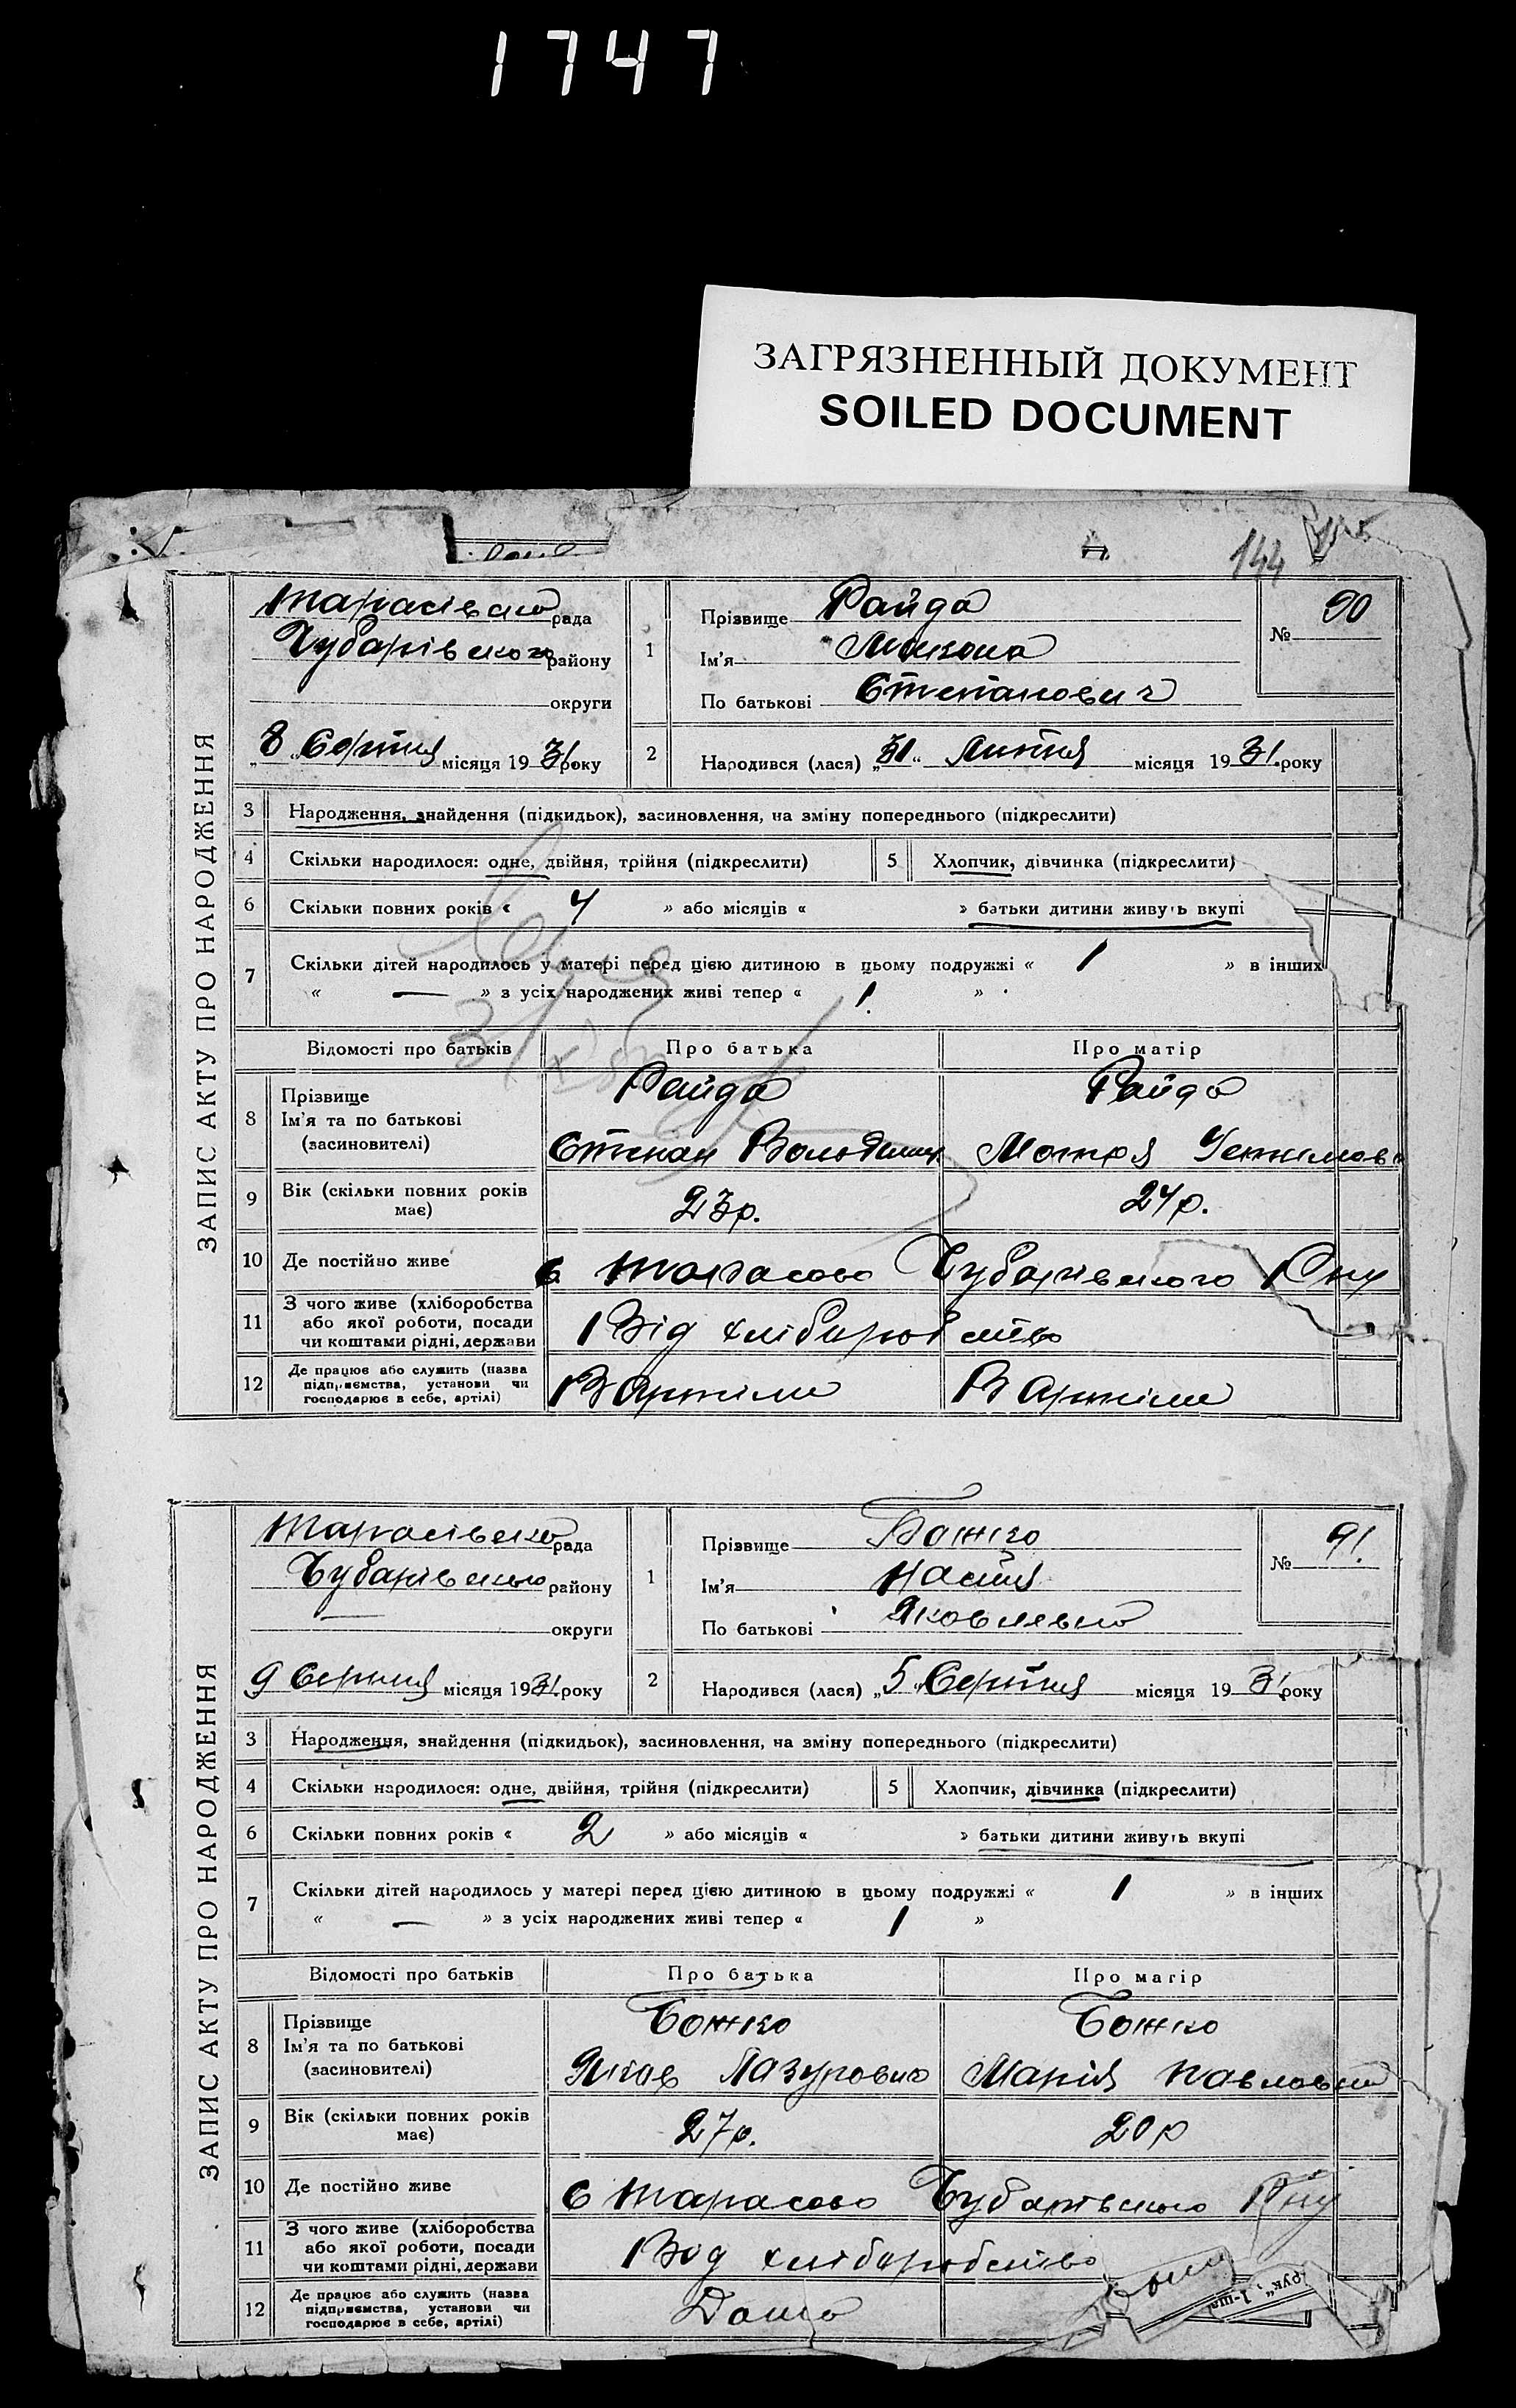 1747
ЗАГРЯЗНЕННЫЙ ДОКУМЕНТ
SOILED DOCUMENT
144
ЗАПИС АКТУ ПРО НАРОДЖЕННЯ
Тарасівсько рада
Чубарівского району
округи
„8 „ Серпня місяця 1931 року
1 Прізвище Райда
Ім'я Микола
По батькові Степанович
№ 90
2 Народився (лася) „31 „ Липня місяця 1931. року
3 Народження, знайдення (підкидьок), засиновлення, на зміну попереднього (підкреслити)
4 Скільки народилося: одне, двійня, трійня (підкреслити) 5 Хлопчик, дівчинка (підкреслити)
6 Скільки повних років « 4 » або місяців « » батьки дитини живуть вкупі
7 Скільки дітей народилось у матері перед цією дитиною в цьому подружжі « 1 » в інших
« — » з усіх народжених живі тепер « 1 »
Відомості про батьків Про батька Про матір
8 Прізвище Райда Райда
Ім'я та по батькові Степан Мотря
(засиновителі)
9 Вік (скільки повних років має) 23р. 24р.
10 Де постійно живе с Тарасово Чубарівского Р ну
11 З чого живе (хліборобства або якої роботи, посади чи коштами рідні, держави Від хліборобство
12 Де працює або служить (назва підприємства, установи чи господарює в себе, артілі) В Артіли В Артіли
ЗАПИС АКТУ ПРО НАРОДЖЕННЯ
Тарасівсько рада
Чубарівського району
— округи
9 Серпня місяця 1931. року
1 Прізвище Божко
Ім'я Настя
По батькові Яковлевно
№ 91.
2 Народився (лася) „5 „ Серпня місяця 1931. року
3 Народження, знайдення (підкидьок), засиновлення, на зміну попереднього (підкреслити)
4 Скільки народилося: одне, двійня, трійня (підкреслити) 5 Хлопчик, дівчинка (підкреслити)
6 Скільки повних років « 2 » або місяців « » батьки дитини живуть вкупі
7 Скільки дітей народилось у матері перед цією дитиною в цьому подружжі « 1 » в інших
« — » з усіх народжених живі тепер « 1 »
Відомості про батьків Про батька Про матір
8 Прізвище Божко Божко
Ім'я та по батькові Яков Лазуровно Марія Павловно
(засиновителі)
9 Вік (скільки повних років має) 27р. 20р
10 Де постійно живе с Тарасово Чубарівського Р ну
11 З чого живе (хліборобства або якої роботи, посади чи коштами рідні, держави Від хліборобство
12 Де працює або служить (назва підприємства, установи чи господарює в себе, артілі) Дома